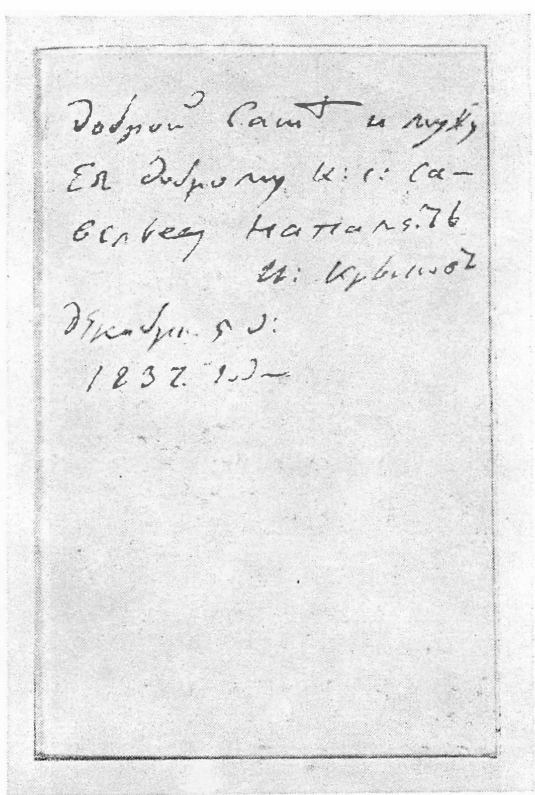 Доброй Сашѣ и мужу
Ея доброму К: С: Са-
вельеву на память
И: Крыловъ
Декабря 5 д:
1837 года